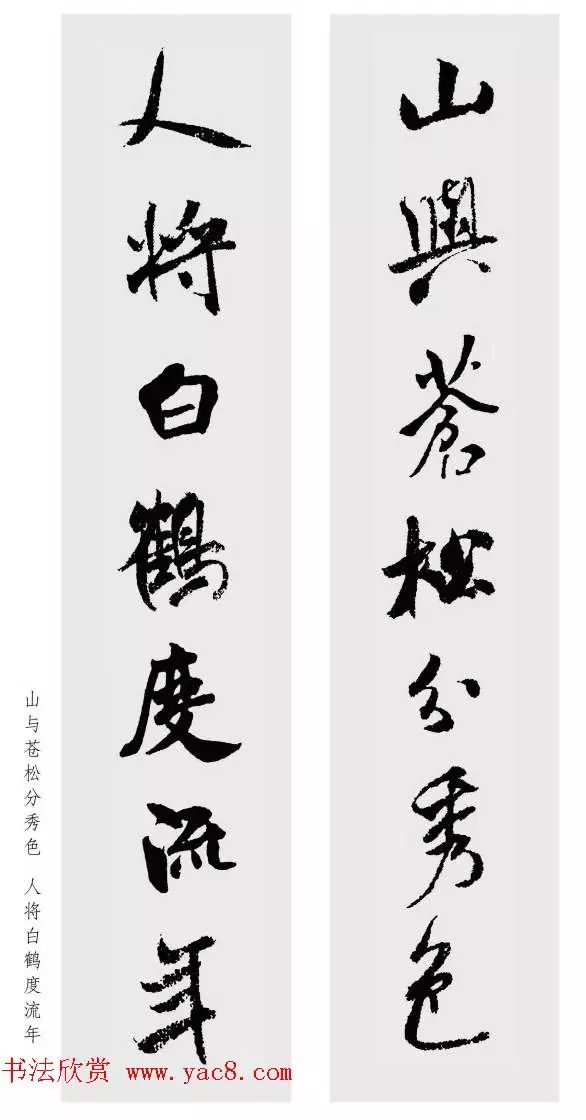 山與蒼松分秀色
人將白鶴度流年
山与苍松分秀色 人将白鹤度流年
书法欣赏 www.yac8.com